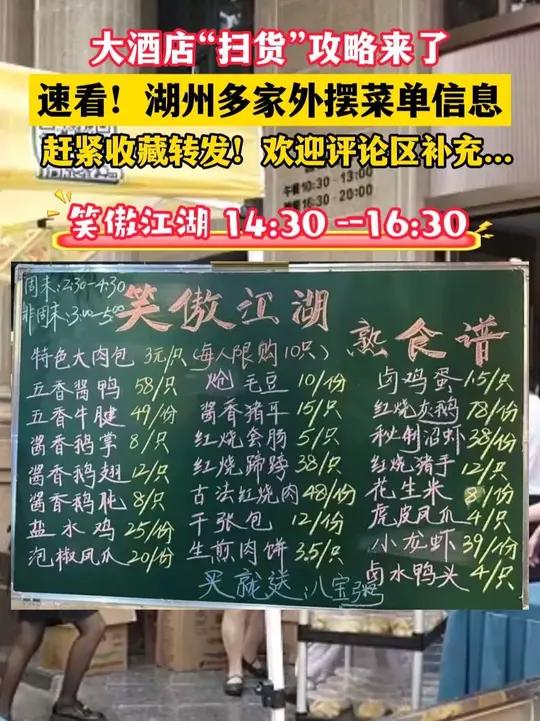 大酒店“扫货”攻略来了
速看！湖州多家外摆菜单信息
赶紧收藏转发！欢迎评论区补充...
午餐10:30-13:00
16:30-20:00
笑傲江湖 14:30 --16:30
周末:2:30-4:30
非周末:3:00-5:00
笑傲江湖
熟食谱
特色大肉包 3元/只(每人限购10只)
五香酱鸭 58/只
五香牛腱 49/份
酱香鹅掌 8/只
酱香鹅翅 12/只
酱香鹅肫 8/只
盐水鸡 25/份
泡椒凤爪 20/份
炝毛豆 10/份
酱香猪耳 15/只
红烧套肠 5/只
红烧蹄髈 38/只
古法红烧肉 48/份
千张包 12/份
生煎肉饼 3.5/只
卤鸡蛋 1.5/只
红烧灰鹅 78/份
秘制沼虾 38/份
红烧猪手 12/只
花生米 8/份
虎皮凤爪 4/只
小龙虾 39/份
卤水鸭头 4/只
买就送八宝粥